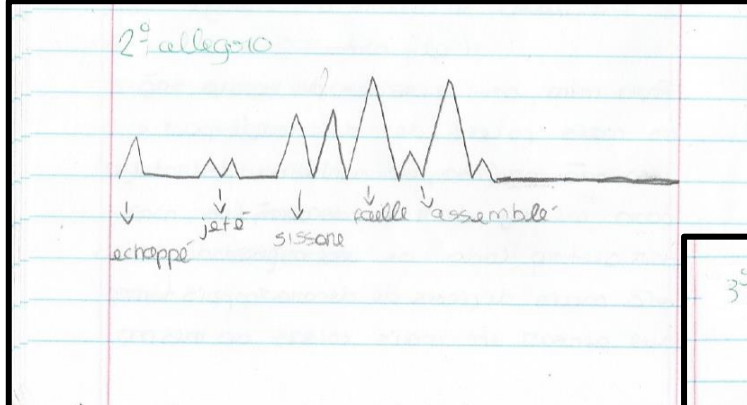 2º allegro
echappé
jeté
sissone
faille
assemblé
3º